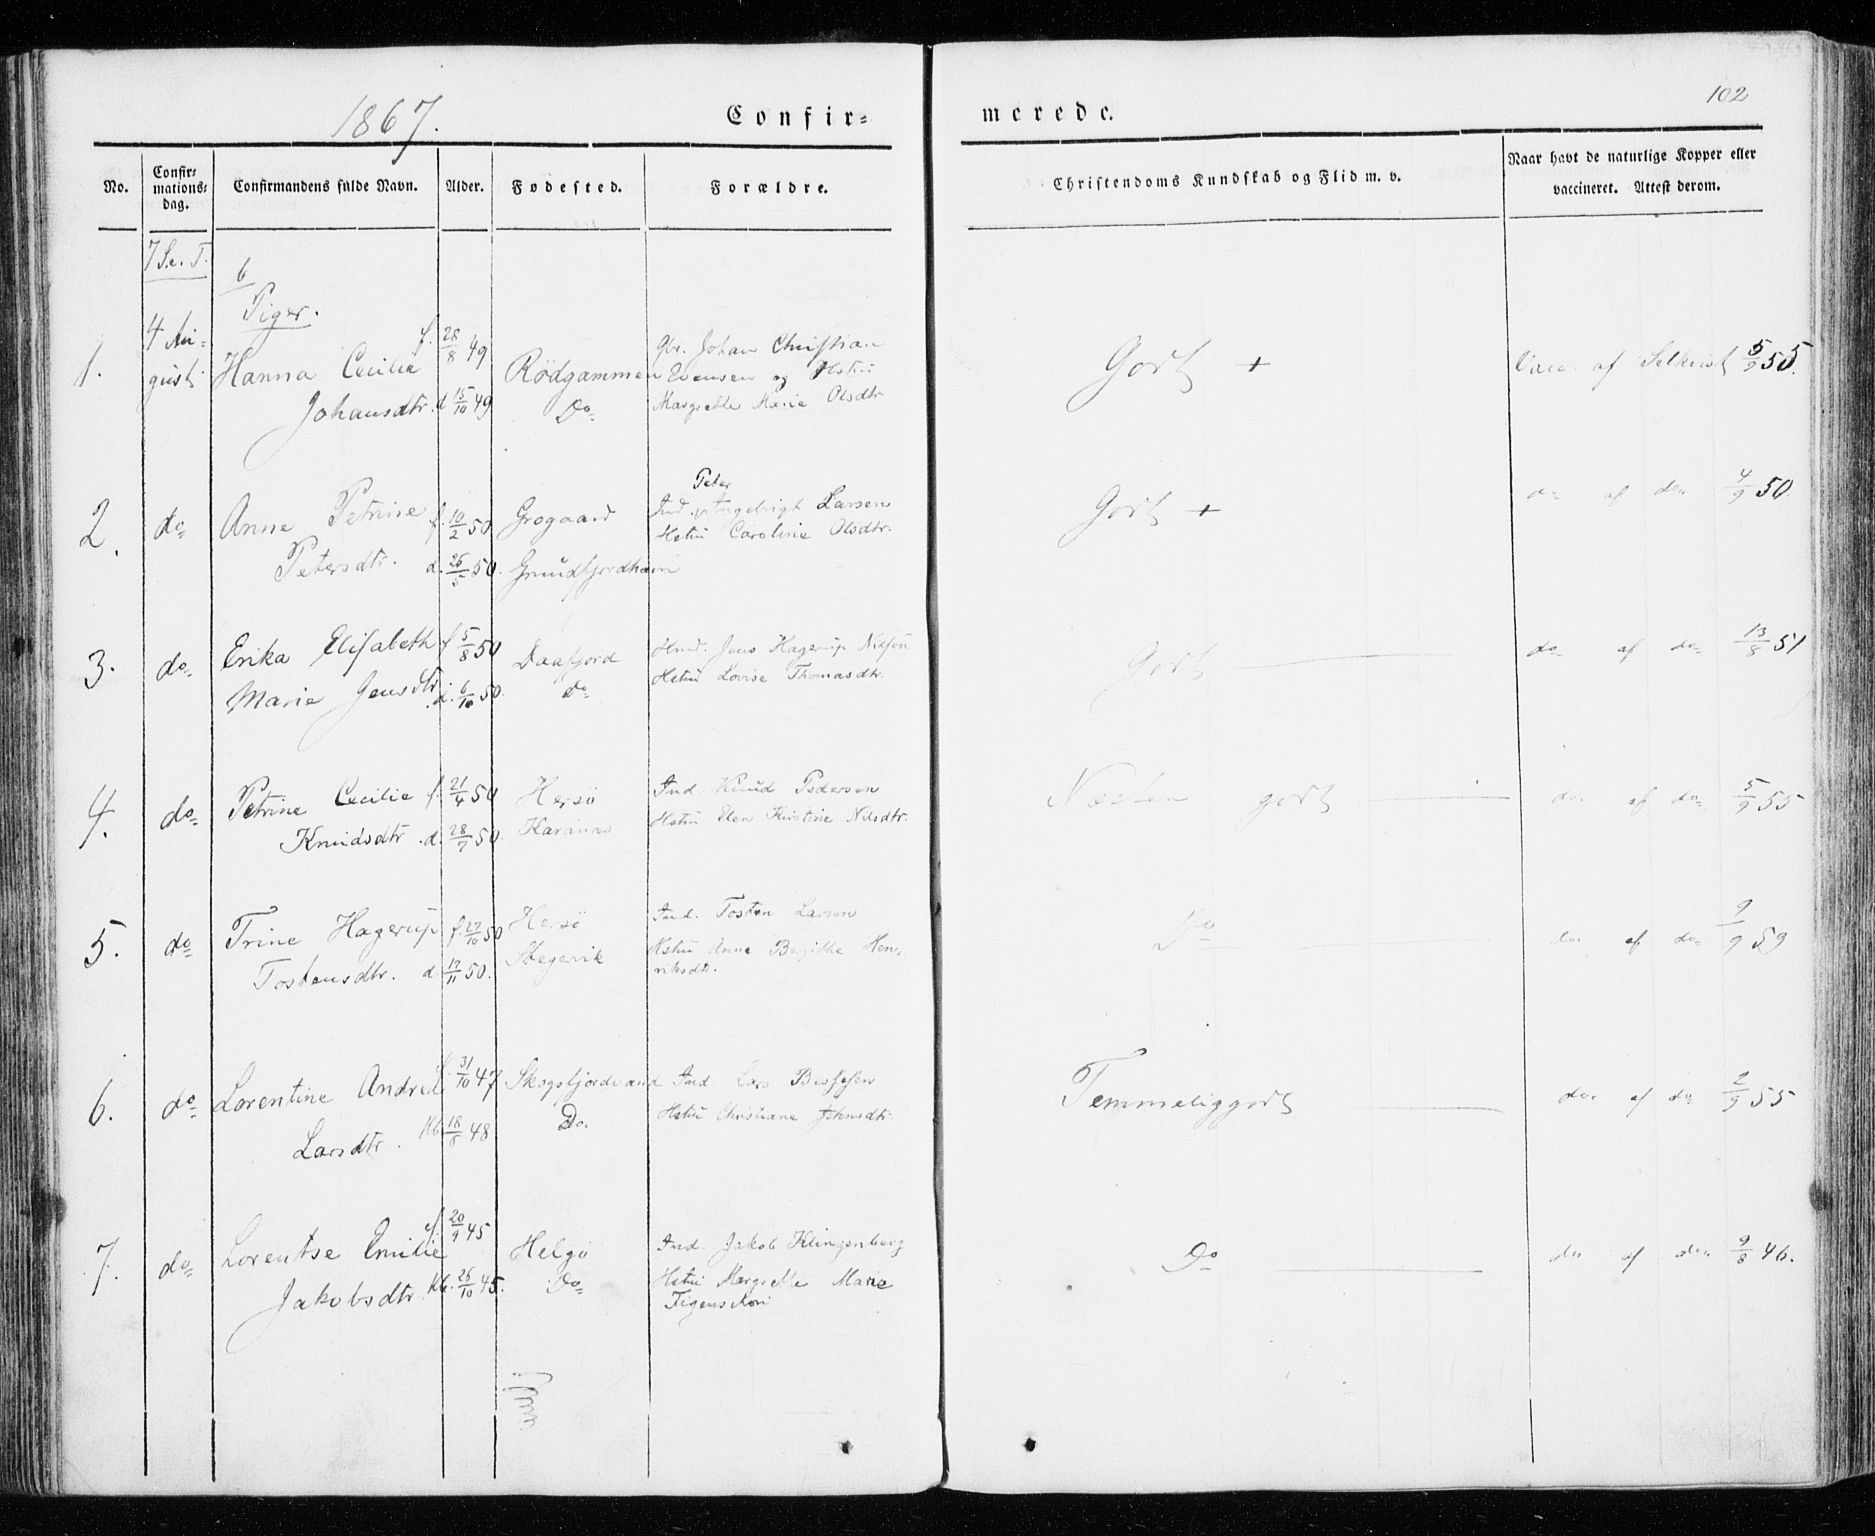 1867.
Confir=
merede.
102
No.
Confir=
mations=
dag.
Confirmandens fulde Navn.
Alder.
Fødested.
Forældre.
Christendoms Kundskab og Flid m. v.
Naar havt de naturlige Kopper eller
vaccineret. Attest derom.
7 S. e. T.
6
Piger.
1.
4 Au=
gust
Hanna Cecilie
Johansdtr.
f. 28/8 49
d. 15/10 49
Rödgammen
Do
Gbr. Johan Christian
Evensen og Hstru
Margrethe Marie Olsdtr.
Godt +
Vacc. af 5/9 55.
2.
do
Anne Petrine
Petersdtr.
f. 10/2 50
d. 26/5 50.
Grogaard
Peter
Ind. Ingebrigt Larsen
Hstru Caroline Olsdtr.
Godt +
do af do 4/9 50.
3.
do
Erika Elisabeth
Marie Jensdtr.
f. 5/8 50
d. 6/10 50.
Daafjord
do
Hmd. Jens Hagerup Nilsen
Hstru Lovise Thomasdtr.
Godt
do af do 13/8 51
4.
do
Petrine Cecilie
Knudsdtr.
f. 21/4 50
d. 28/7 50.
Hersö
Ind. Knud Pedersen
Hstru Elen Kirstine Nilsdtr.
Næsten godt
do af do 5/9 55
5.
do
Trine Hagerup
Tostensdtr.
f. 27/10 50
d. 17/11 50.
Hersö
Ind. Tosten Larsen
Hstru Anne Birgitthe Hen=
riksdtr.
Do
do af do 9/9 59
6.
do
Lorentine Andrea
Larsdtr.
f. 31/10 47
Kb. 18/8 48
Skogsfjordvand
Do.
Ind. Lars
Hstru Christiane Johnsdtr.
Temmelig godt
do af do 2/9 55
7.
do
Lorentse Emilie
Jakobsdtr.
f. 20/9 45
Kb. 26/10 45.
Helgö
Do
Ind. Jakob Klingenberg
Hstru Margrethe Marie
Do
do af do 9/8 46.